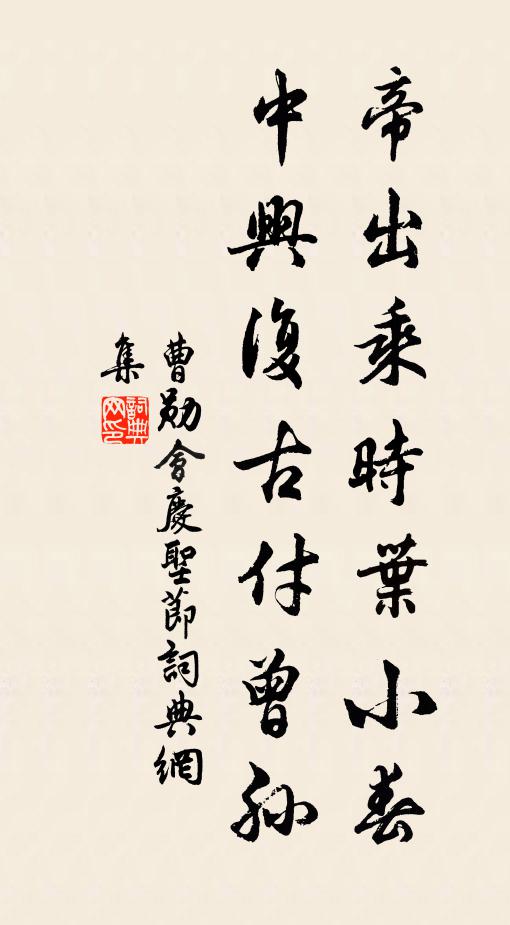 帝出乘時葉小春
中興復古付曾孫
曹勛會慶聖節詞典網
集
詞典網印